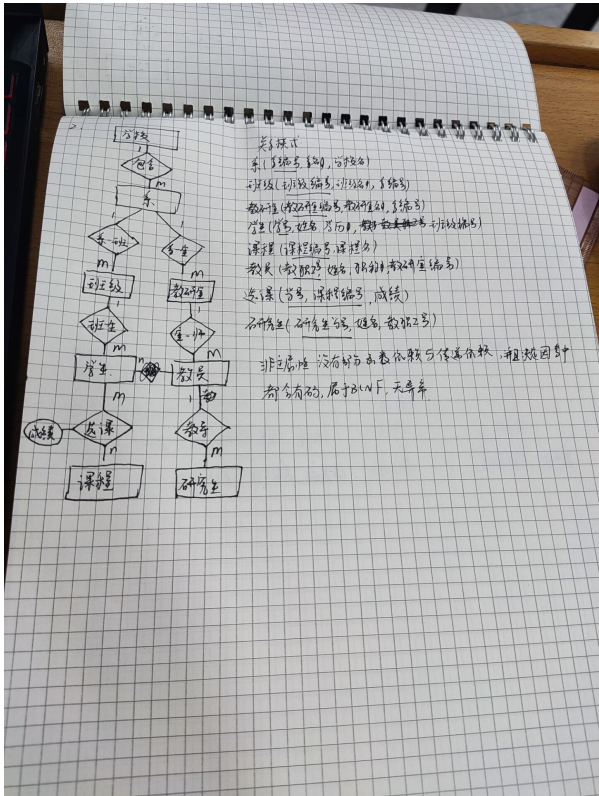 2.
分校
1
包含
m
系
1
1
系-班
系-室
m
m
班级
教研室
1
1
班-生
室-师
m
m
学生
n
教员
m
1
成绩
选课
教导
n
m
课程
研究生
关系模式
系(系编号,系名,分校名)
班级(班级编号,班级名,系编号)
教研室(教研室编号,教研室名,系编号)
学生(学号,姓名,学历,班级编号)
课程(课程编号,课程名)
教员(教职工号,姓名,职称,教研室编号)
选课(学号,课程编号,成绩)
研究生(研究生号,姓名,教职工号)
非主属性没有部分函数依赖与传递依赖,且决定因素中
都含有码,属于BCNF,无异常